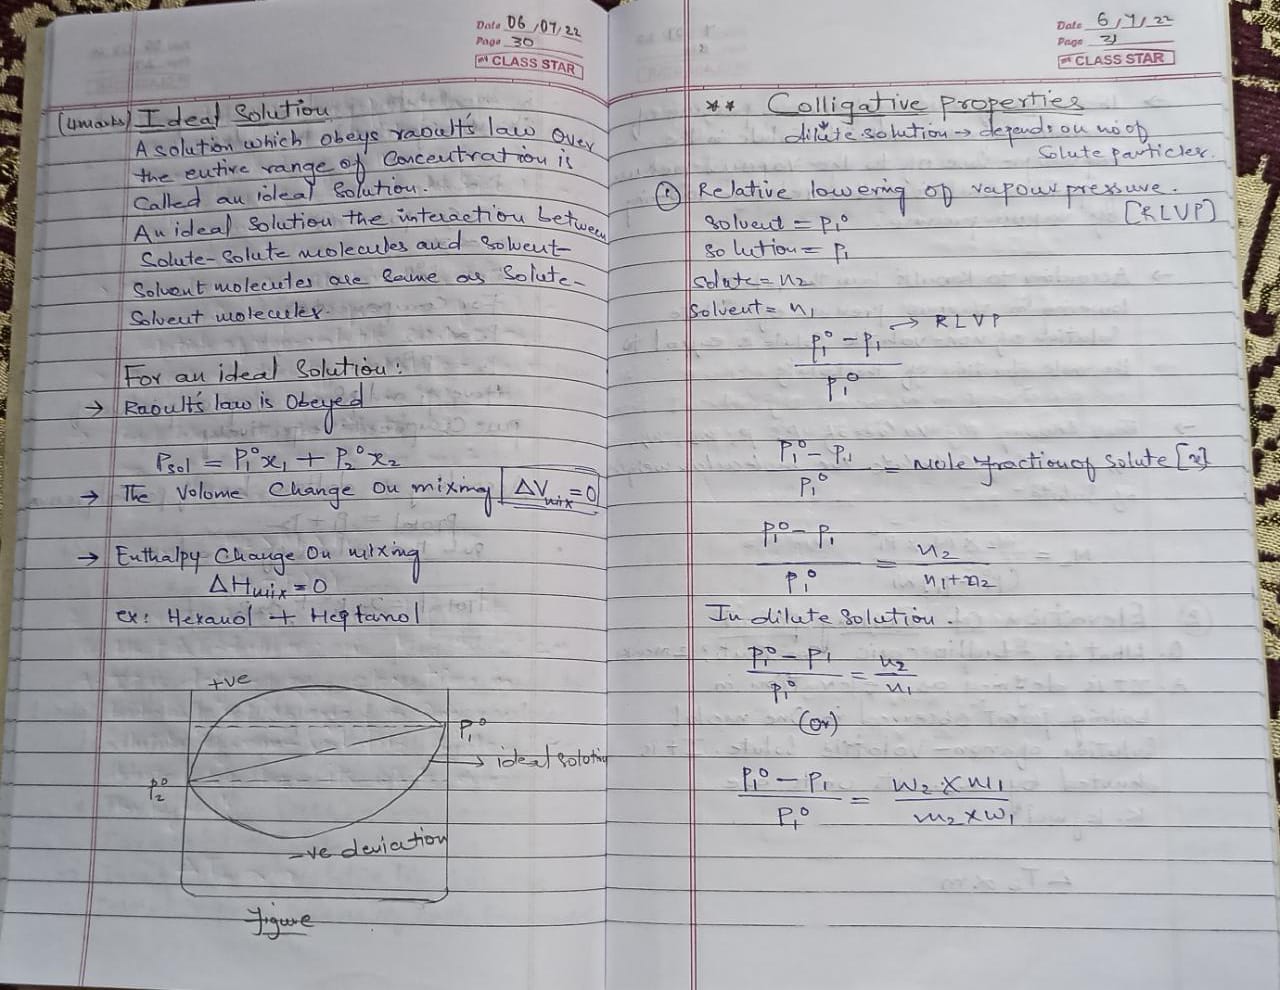 Date 06/07/22
Page 30
CLASS STAR
(4marks) Ideal Solution
A solution which obeys raoult's law over
the entire range of Concentration is
Called an ideal Solution.
An ideal Solution the interaction between
Solute-Solute molecules and Solvent-
Solvent molecules are Same as Solute-
Solvent molecules.
For an ideal Solution:
→ Raoult's law is Obeyed
Psol = P₁°x₁ + P₂°x₂
→ The Volume Change On mixing ΔVmix=0
→ Enthalpy Change On mixing
ΔHmix=0
ex: Hexanol + Heptanol
+ve
P₁°
→ ideal Solution
P₂°
-ve deviation
figure
Date 6/7/22
Page 31
CLASS STAR
** Colligative properties
dilute solution → depends on no of
Solute particles.
① Relative lowering of vapour pressure.
[RLVP]
Solvent = P₁°
Solution = P₁
Solute = n₂
Solvent = n₁
P₁° - P₁ → RLVP
P₁°
P₁° - P₁ / P₁° = Mole fraction of Solute [x]
P₁° - P₁ / P₁° = n₂ / n₁+n₂
In dilute Solution.
P₁° - P₁ / P₁° = n₂ / n₁
(or)
P₁° - P₁ / P₁° = W₂ × M₁ / M₂ × W₁